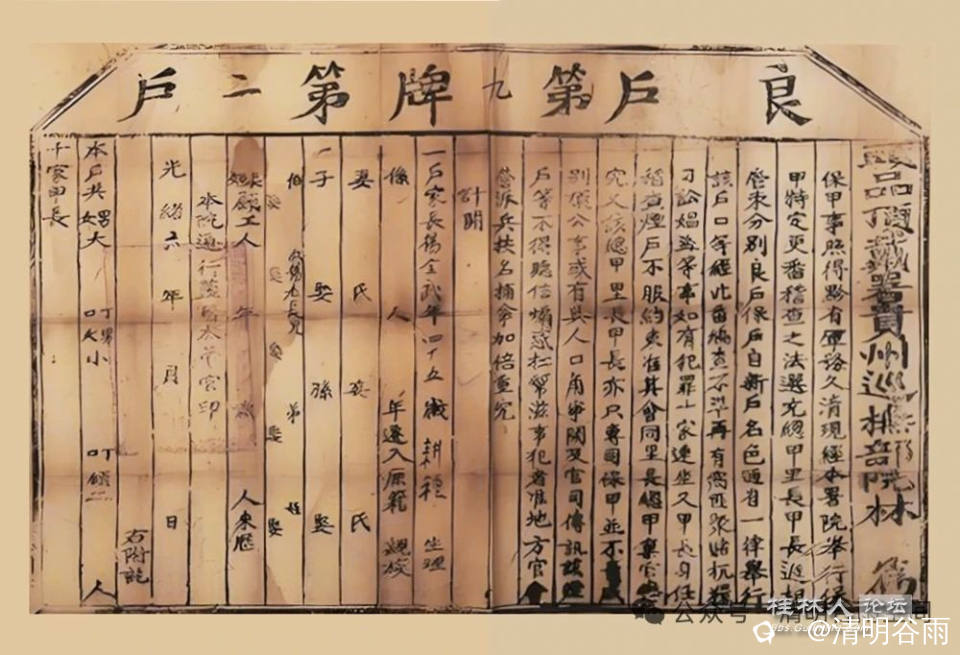 良戶第九牌第二戶
品頂戴署貴州巡撫部院林 為
保甲事照得黔省軍務久清現經本署院舉行保
甲特定更番稽查之法選充總甲里長甲長遞相
管束分別良戶保戶自新戶名色通省一律舉行
該戶口等經此番編查不準再有窩匪聚賭抗糧
刁訟娼盜等事如有犯罪十家連坐又甲長身任
稽查煙戶不服約束准其會同里長總甲稟官
究又該總甲里長甲長亦只專司保甲並不
別樣公事或有與人口角爭鬧及官司傳訊該
戶等不得聽信煽惑幫滋事犯者准地方官會
營派兵扶名捕拿加倍重究
計開
一戶家長楊全武年四十五歲 耕種 生理
係 人 年遷入原籍
妻 氏 妾 氏
一子 娶 孫 娶
伯 娶 弟 娶 侄 娶
雇工人 年 歲 人來歷
本院通行 本管官印
光緒六年 月 日
右附記
本戶共男女大 丁口 男女小 丁口 人
十家甲長
公众号
桂林人论坛
@清明谷雨